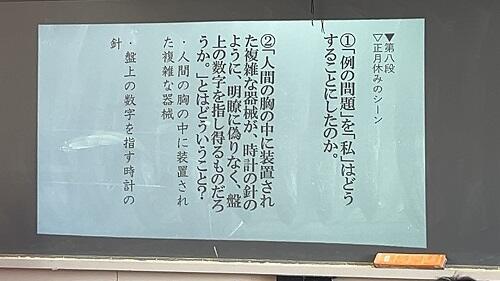 ▼第八段
▽正月休みのシーン
①「例の問題」を「私」はどう
することにしたのか。
②「人間の胸の中に装置され
た複雑な器械が、時計の針の
ように、明瞭に偽りなく、盤
上の数字を指し得るものだろ
うか。」とはどういうこと?
・人間の胸の中に装置され
た複雑な器械
・盤上の数字を指す時計の
針